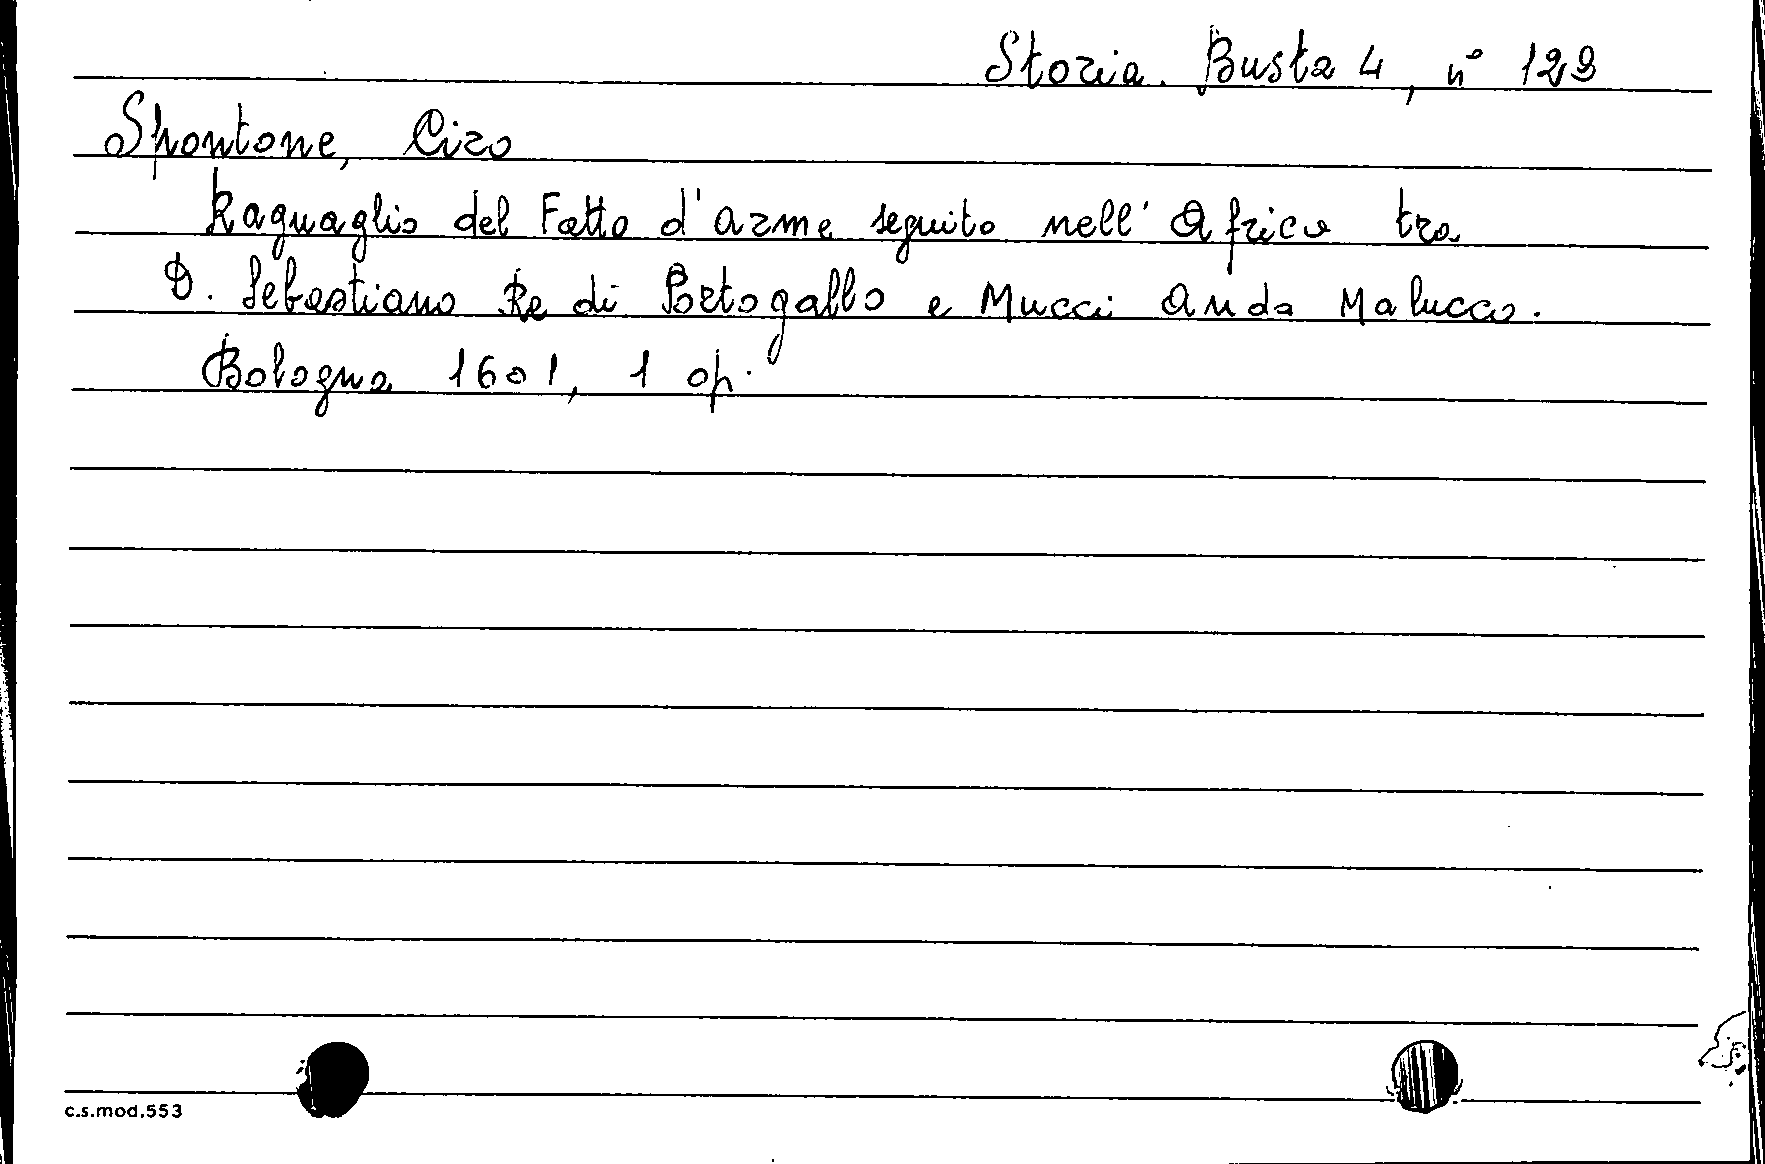 Storia. Busta 4, n° 129
Spontone, Ciro
Raguaglio del Fatto d'arme seguito nell'Africa tra
D. Sebastiano Re di Portogallo e Mucci Anda Malucco.
Bologna 1601, 1 op.
c.s.mod.553